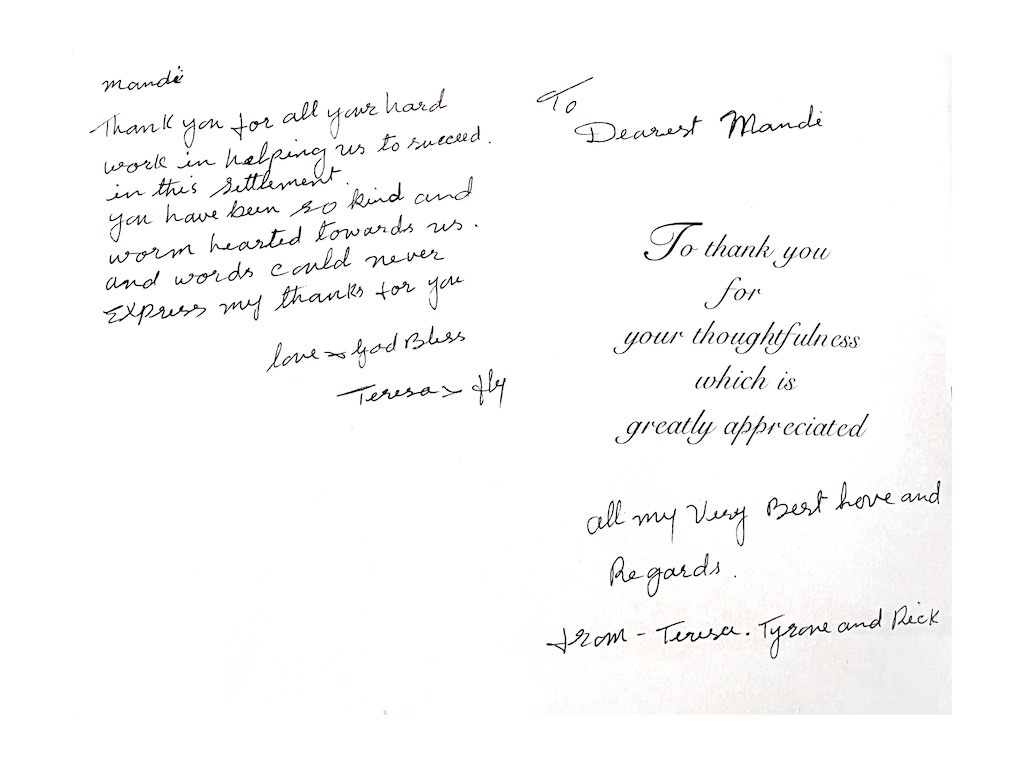 Mandi
Thank you for all your hard
work in helping us to succeed.
in this settlement.
you have been so kind and
worm hearted towards us.
and words could never
Express my thanks for you
love & God Bless
Teresa & fly
To
Dearest Mandi
To thank you
for
your thoughtfulness
which is
greatly appreciated
all my Very Best love and
Regards.
from - Teresa. Tyrone and Rick